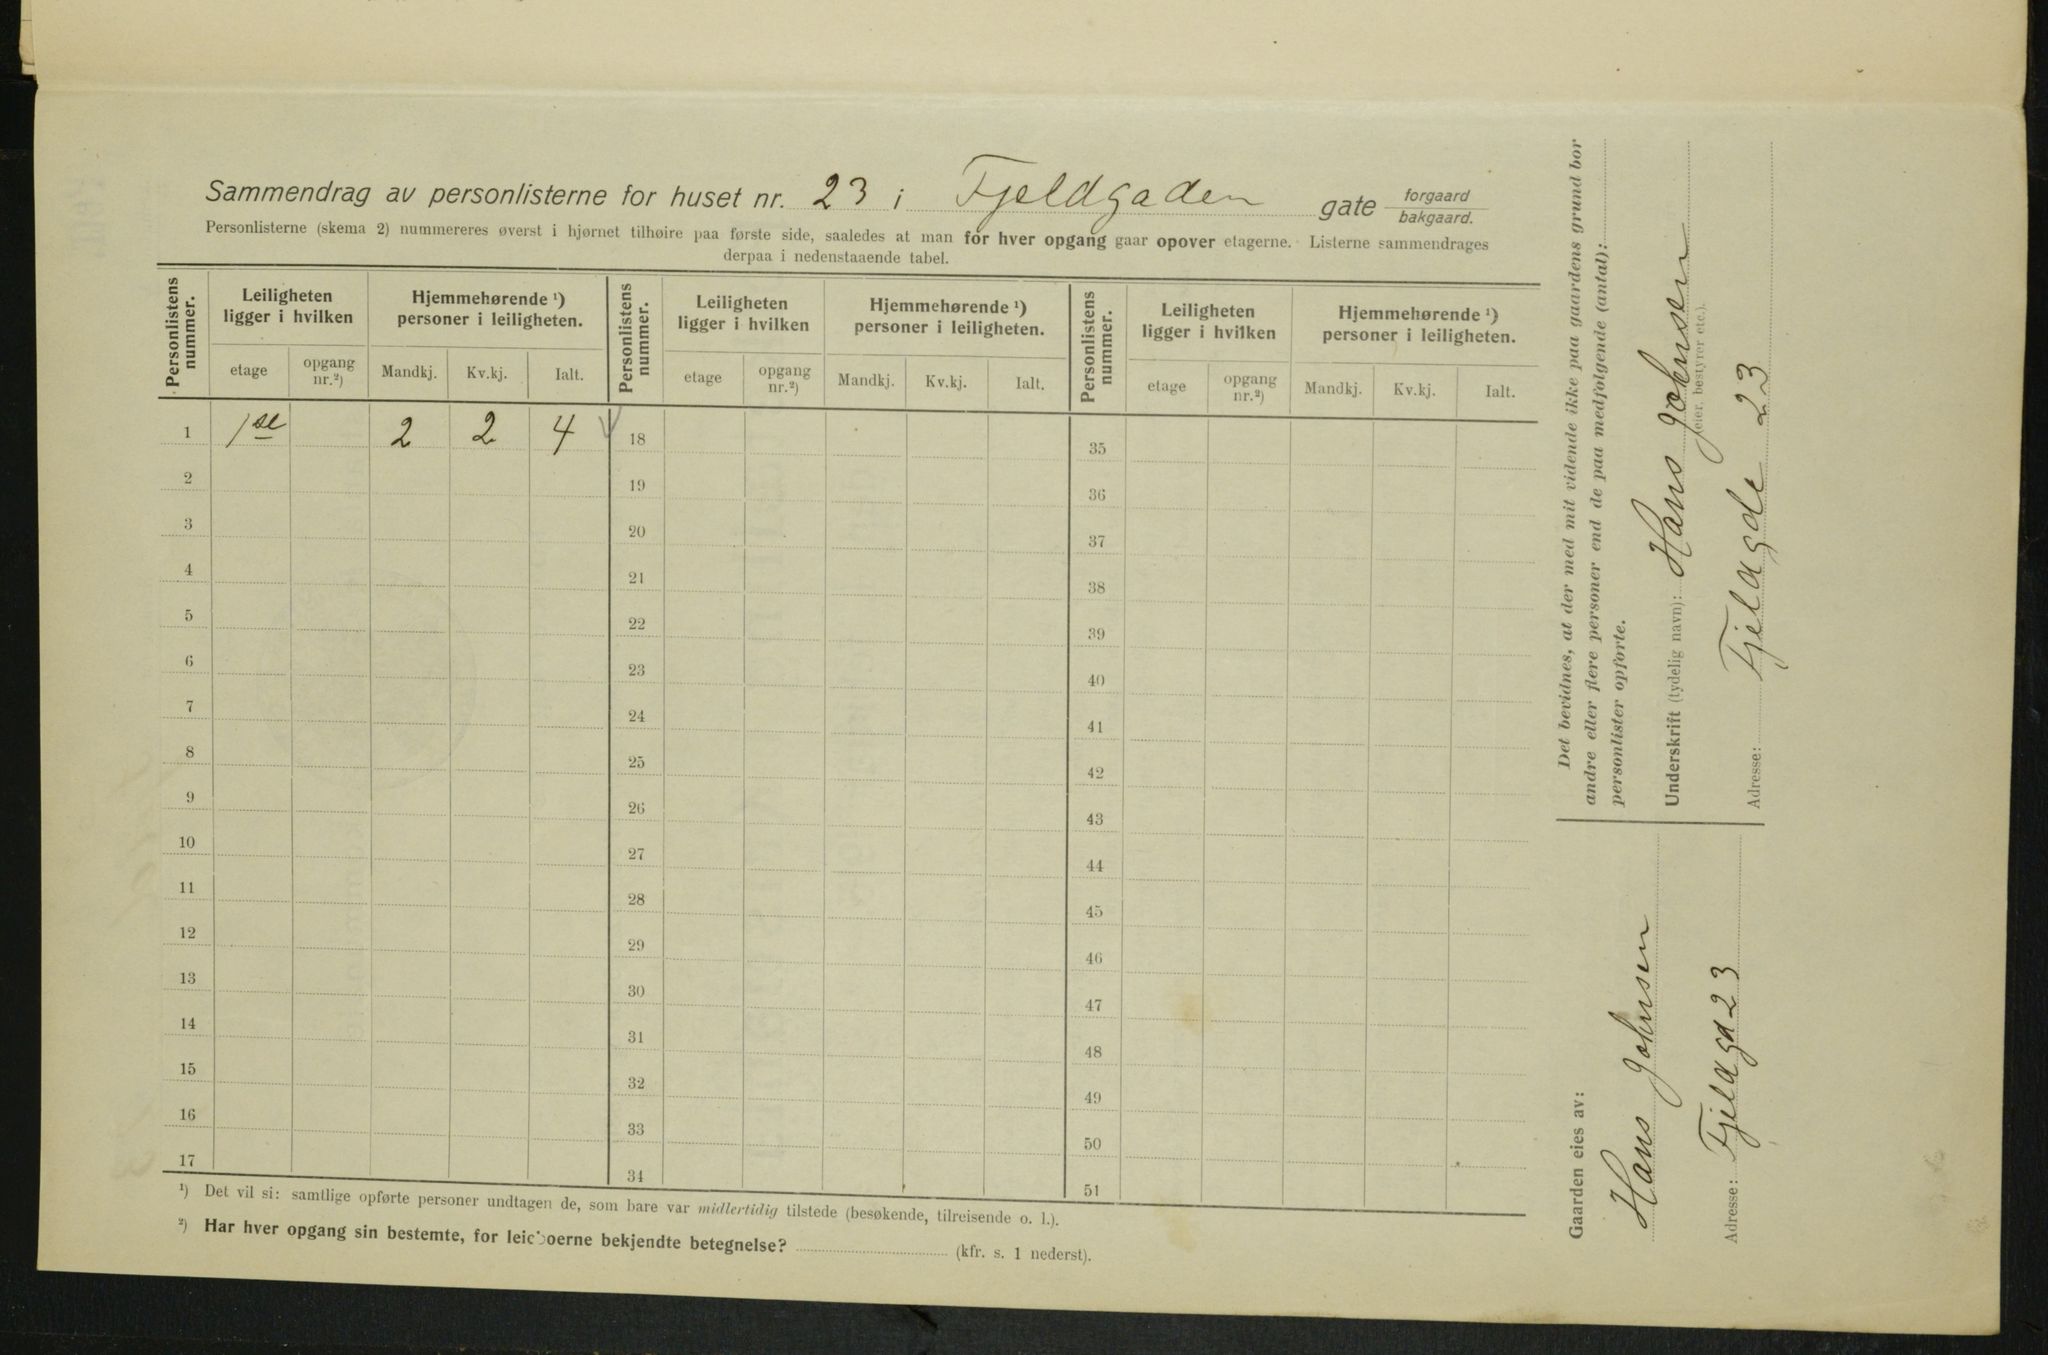 Sammendrag av personlisterne for huset nr. 23 i Fjeldgaden gate forgaard bakgaard.
Personlisterne (skema 2) nummereres øverst i hjørnet tilhøire paa første side, saaledes at man for hver opgang gaar opover etagerne. Listerne sammendrages
derpaa i nedenstaaende tabel.
Personlistens nummer. Leiligheten ligger i hvilken Hjemmehørende ¹) personer i leiligheten. Personlistens nummer. Leiligheten ligger i hvilken Hjemmehørende ¹) personer i leiligheten. Personlistens nummer. Leiligheten ligger i hvilken Hjemmehørende ¹) personer i leiligheten.
etage opgang nr.²) Mandkj. Kv.kj. Ialt. etage opgang nr.²) Mandkj. Kv.kj. Ialt. etage opgang nr.²) Mandkj. Kv.kj. Ialt.
1 1se 2 2 4 18 35
2 19 36
3 20 37
4 21 38
5 22 39
6 23 40
7 24 41
8 25 42
9 26 43
10 27 44
11 28 45
12 29 46
13 30 47
14 31 48
15 32 49
16 33 50
17 34 51
¹) Det vil si: samtlige opførte personer undtagen de, som bare var midlertidig tilstede (besøkende, tilreisende o. l.).
²) Har hver opgang sin bestemte, for leieboerne bekjendte betegnelse? (kfr. s. 1 nederst).
Det bevidnes, at der med mit vidende ikke paa gaardens grund bor
andre eller flere personer end de paa medfølgende (antal):
personlister opførte.
Underskrift (tydelig navn): Hans Johnsen
(eier, bestyrer etc.).
Adresse: Fjeldgde 23
Gaarden eies av:
Hans Johnsen
Adresse: Fjeldgd 23